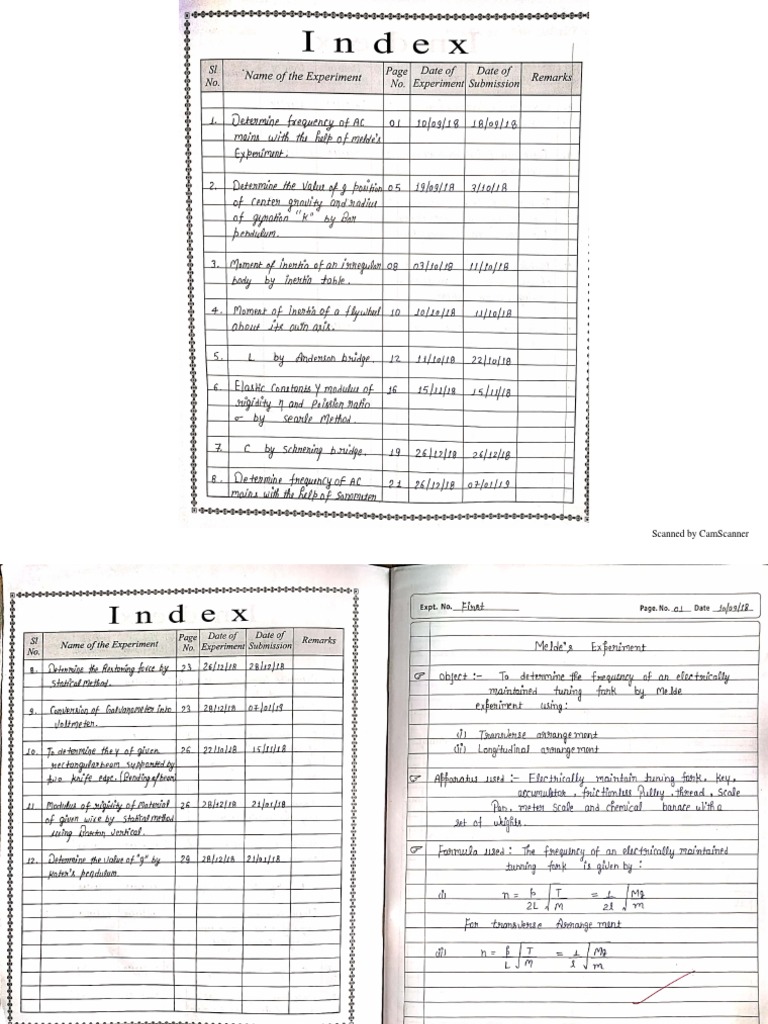 Index
Sl No. Name of the Experiment Page No. Date of Experiment Date of Submission Remarks
1. Determine frequency of AC 01 10/09/18 18/09/18
mains with the help of melde's
Experiment.
2. Determine the value of g position 05 19/09/18 3/10/18
of center gravity and radius
of gyration "K" by Bar
pendulum.
3. Moment of inertia of an irregular 08 03/10/18 11/10/18
body by inertia table.
4. Moment of inertia of a flywheel 10 10/10/18 11/10/18
about its own axis.
5. L by Anderson bridge. 12 11/10/18 22/10/18
6. Elastic Constants Y modulus of 16 15/11/18 15/11/18
rigidity η and Poission ratio
σ by searle Method.
7. C by Schnering bridge. 19 26/12/18 26/12/18
8. Determine frequency of AC 21 26/12/18 07/01/19
mains with the help of
Scanned by CamScanner
Index
Sl No. Name of the Experiment Page No. Date of Experiment Date of Submission Remarks
8. Determine the Restoring force by 23 26/12/18 28/12/18
Statical Method.
9. Conversion of Galvanometer into 23 28/12/18 07/01/19
Voltmeter.
10. To determine the y of given 26 22/10/18 15/11/18
rectangular beam supported by
two knife edge. (Bending of beam)
11 Modulus of rigidity of Material 26 28/12/18 21/01/18
of given wire by statical method
using Barton vertical.
12. Determine the value of "g" by 29 28/12/18 21/01/18
Kater's pendulum.
Expt. No. First Page. No. 01 Date 10/09/18
Melde's Experiment
Object :- To determine the frequency of an electrically
maintained tuning fork by Melde
experiment using:
(i) Transverse arrangement
(ii) Longitudinal arrangement
Apparatus used :- Electrically maintain tuning fork, Key,
accumulator, frictionless Pulley, thread, Scale
Pan, meter Scale and chemical banace with a
set of weights.
Formula used : The frequency of an electrically maintained
tunning fork is given by :
(i) n = p/2L √T/M = 1/2l √Mg/m
For transverse Arrangement
(ii) n = p/L √T/M = 1/l √Mg/m